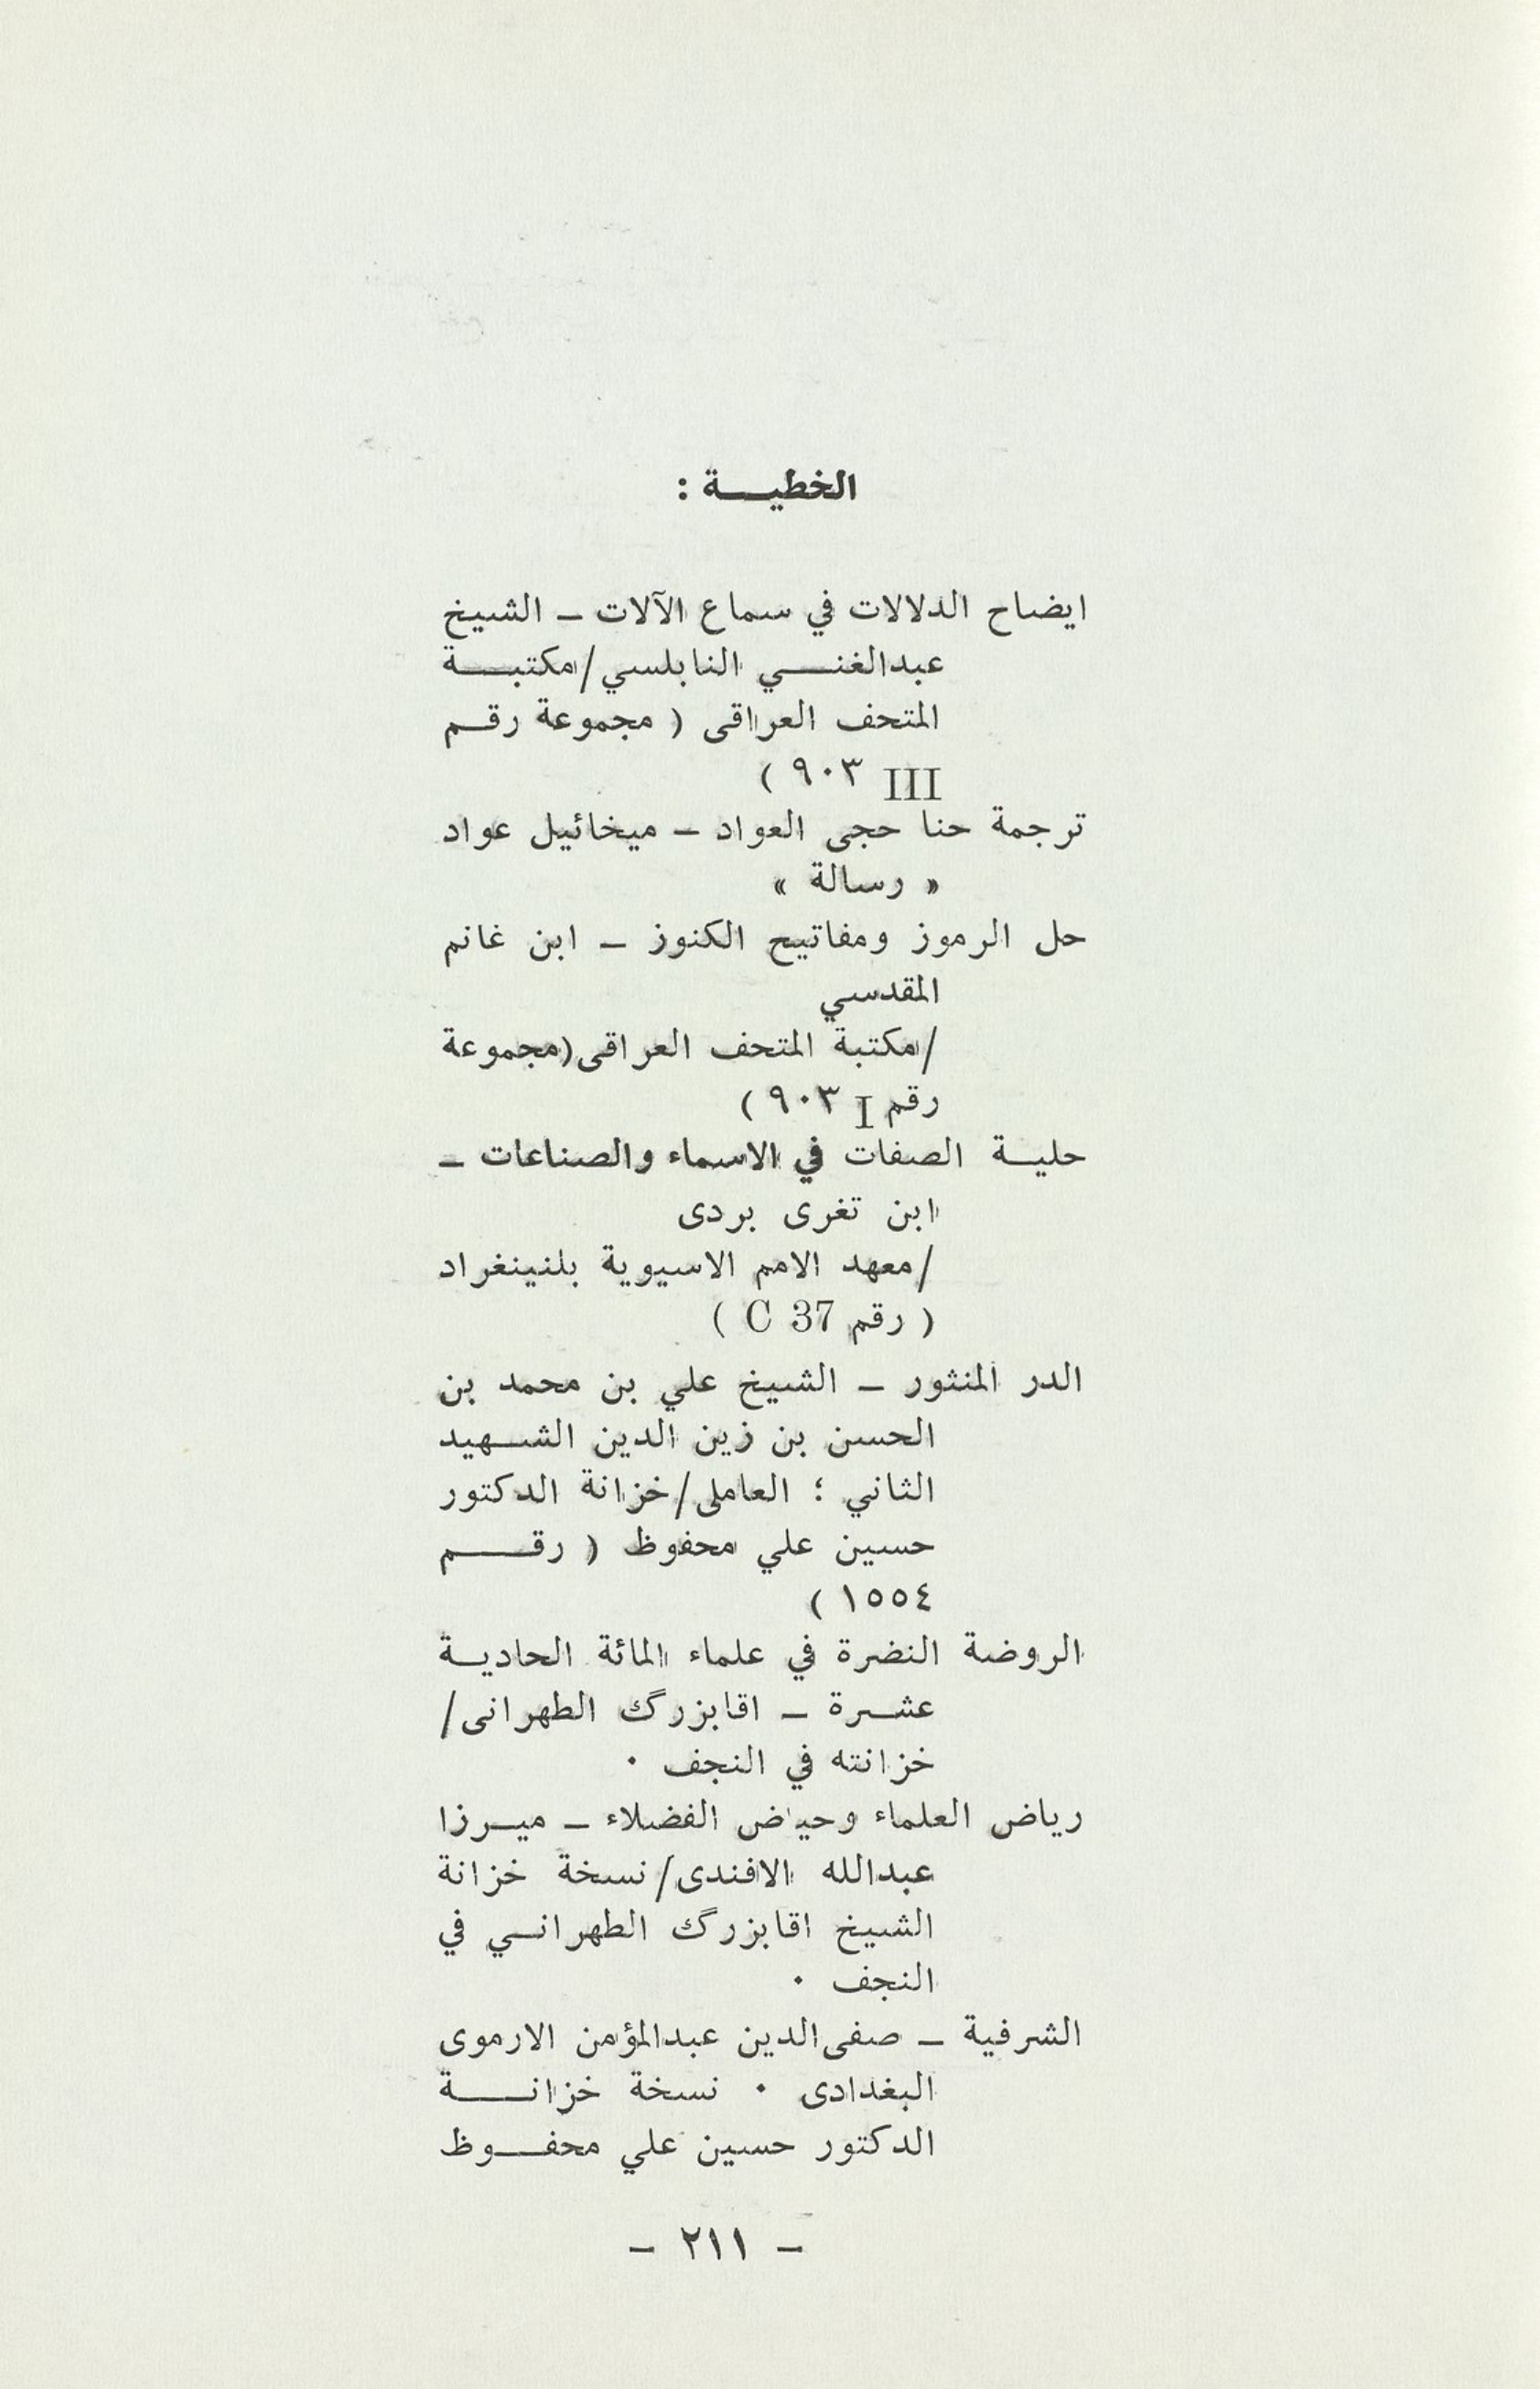 الخطيـــة :
ايضاح الدلالات في سماع الآلات ــ الشيخ
عبدالغنـــي النابلسي/مكتبـــة
المتحف العراقى ( مجموعة رقــم
III ٩٠٣ )
ترجمة حنا حجى العواد ــ ميخائيل عواد
« رسالة »
حل الرموز ومفاتيح الكنوز ــ ابن غانم
المقدسي
/مكتبة المتحف العراقى(مجموعة
رقم I ٩٠٣ )
حليــة الصفات في الاسماء والصناعات ــ
ابن تغرى بردى
/معهد الامم الاسيوية بلنينغراد
( رقم C 37 )
الدر المنثور ــ الشيخ علي بن محمد بن
الحسن بن زين الدين الشــهيد
الثاني ؛ العاملى/خزانة الدكتور
حسين علي محفوظ ( رقـــــم
١٥٥٤ )
الروضة النضرة في علماء المائة الحاديــة
عشــرة ــ اقابزرگ الطهرانى/
خزانته في النجف ٠
رياض العلماء وحياض الفضلاء ــ ميــرزا
عبدالله الافندى/نسخة خزانة
الشيخ اقابزرگ الطهرانــي في
النجف ٠
الشرفية ــ صفى‌الدين عبدالمؤمن الارموى
البغدادى ٠ نسخة خزانـــــة
الدكتور حسين علي محفــــوظ
ــ ٢١١ ــ